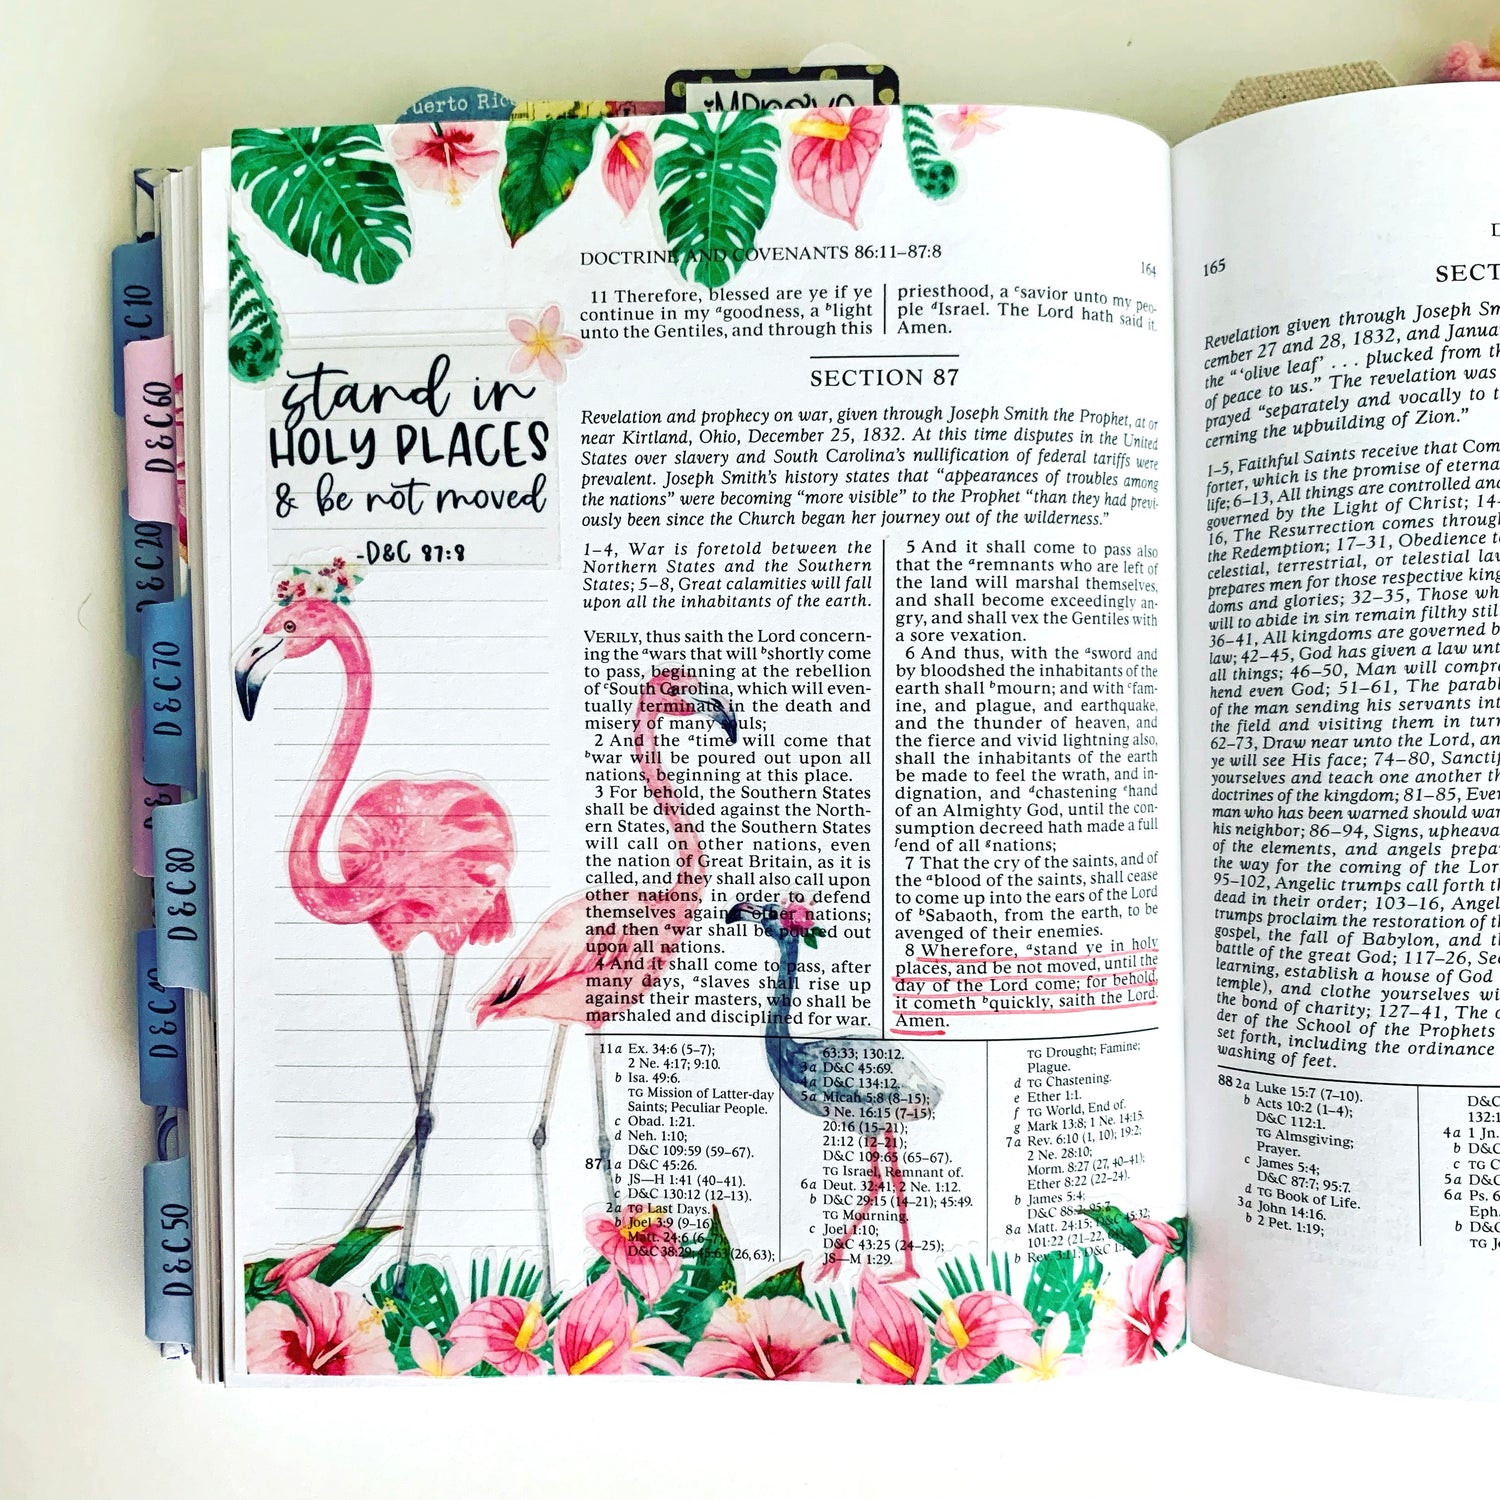 uerto Ric
improve
D&C 10
D&C 60
D&C 20
D&C 70
D&C 80
D&C 40
D&C 50
stand in
HOLY PLACES
& be not moved
-D&C 87:8
DOCTRINE AND COVENANTS 86:11–87:8
164
11 Therefore, blessed are ye if ye
continue in my ᵃgoodness, a ᵇlight
unto the Gentiles, and through this
priesthood, a ᶜsavior unto my peo-
ple ᵈIsrael. The Lord hath said it.
Amen.
SECTION 87
Revelation and prophecy on war, given through Joseph Smith the Prophet, at or
near Kirtland, Ohio, December 25, 1832. At this time disputes in the United
States over slavery and South Carolina’s nullification of federal tariffs were
prevalent. Joseph Smith’s history states that “appearances of troubles among
the nations” were becoming “more visible” to the Prophet “than they had previ-
ously been since the Church began her journey out of the wilderness.”
1–4, War is foretold between the
Northern States and the Southern
States; 5–8, Great calamities will fall
upon all the inhabitants of the earth.
VERILY, thus saith the Lord concern-
ing the ᵃwars that will ᵇshortly come
to pass, beginning at the rebellion
of ᶜSouth Carolina, which will even-
tually terminate in the death and
misery of many souls;
2 And the ᵃtime will come that
ᵇwar will be poured out upon all
nations, beginning at this place.
3 For behold, the Southern States
shall be divided against the North-
ern States, and the Southern States
will call on other nations, even
the nation of Great Britain, as it is
called, and they shall also call upon
other nations, in order to defend
themselves against other nations;
and then ᵃwar shall be poured out
upon all nations.
4 And it shall come to pass, after
many days, ᵃslaves shall rise up
against their masters, who shall be
marshaled and disciplined for war.
5 And it shall come to pass also
that the ᵃremnants who are left of
the land will marshal themselves,
and shall become exceedingly an-
gry, and shall vex the Gentiles with
a sore vexation.
6 And thus, with the ᵃsword and
by bloodshed the inhabitants of the
earth shall ᵇmourn; and with ᶜfam-
ine, and plague, and earthquake,
and the thunder of heaven, and
the fierce and vivid lightning also,
shall the inhabitants of the earth
be made to feel the wrath, and in-
dignation, and ᵈchastening ᵉhand
of an Almighty God, until the con-
sumption decreed hath made a full
ᶠend of all ᵍnations;
7 That the cry of the saints, and of
the ᵃblood of the saints, shall cease
to come up into the ears of the Lord
of ᵇSabaoth, from the earth, to be
avenged of their enemies.
8 Wherefore, ᵃstand ye in holy
places, and be not moved, until the
day of the Lord come; for behold,
it cometh ᵇquickly, saith the Lord.
Amen.
11a Ex. 34:6 (5–7);
2 Ne. 4:17; 9:10.
b Isa. 49:6.
TG Mission of Latter-day
Saints; Peculiar People.
c Obad. 1:21.
d Neh. 1:10;
D&C 109:59 (59–67).
87 1a D&C 45:26.
b JS—H 1:41 (40–41).
c D&C 130:12 (12–13).
2a TG Last Days.
b Joel 3:9 (9–16);
Matt. 24:6 (6–7);
D&C 38:29; 45:63 (26, 63);
63:33; 130:12.
3a D&C 45:69.
4a D&C 134:12.
5a Micah 5:8 (8–15);
3 Ne. 16:15 (7–15);
20:16 (15–21);
21:12 (12–21);
D&C 109:65 (65–67).
TG Israel, Remnant of.
6a Deut. 32:41; 2 Ne. 1:12.
b D&C 29:15 (14–21); 45:49.
TG Mourning.
c Joel 1:10;
D&C 43:25 (24–25);
JS—M 1:29.
TG Drought; Famine;
Plague.
d TG Chastening.
e Ether 1:1.
f TG World, End of.
g Mark 13:8; 1 Ne. 14:15.
7a Rev. 6:10 (1, 10); 19:2;
2 Ne. 28:10;
Morm. 8:27 (27, 40–41);
Ether 8:22 (22–24).
b James 5:4;
D&C 88:2; 95:7.
8a Matt. 24:15; D&C 45:32;
101:22 (21–22,
b Rev. 3:11; D&C
165
SECT
Revelation given through Joseph Sm
cember 27 and 28, 1832, and Janua
the “‘olive leaf’ . . . plucked from th
of peace to us.” The revelation was
prayed “separately and vocally to t
cerning the upbuilding of Zion.”
1–5, Faithful Saints receive that Com
forter, which is the promise of eterna
life; 6–13, All things are controlled and
governed by the Light of Christ; 14–
16, The Resurrection comes through
the Redemption; 17–31, Obedience to
celestial, terrestrial, or telestial law
prepares men for those respective king
doms and glories; 32–35, Those wh
will to abide in sin remain filthy still
36–41, All kingdoms are governed b
law; 42–45, God has given a law unt
all things; 46–50, Man will compre
hend even God; 51–61, The parabl
of the man sending his servants int
the field and visiting them in turn
62–73, Draw near unto the Lord, an
ye will see His face; 74–80, Sanctif
yourselves and teach one another th
doctrines of the kingdom; 81–85, Ever
man who has been warned should war
his neighbor; 86–94, Signs, upheava
of the elements, and angels prepa
the way for the coming of the Lor
95–102, Angelic trumps call forth th
dead in their order; 103–16, Angel
trumps proclaim the restoration of th
gospel, the fall of Babylon, and th
battle of the great God; 117–26, See
learning, establish a house of God
temple), and clothe yourselves wi
the bond of charity; 127–41, The o
der of the School of the Prophets
set forth, including the ordinance
washing of feet.
88 2a Luke 15:7 (7–10).
b Acts 10:2 (1–4);
D&C 112:1.
TG Almsgiving;
Prayer.
c James 5:4;
D&C 87:7; 95:7.
d TG Book of Life.
3a John 14:16.
b 2 Pet. 1:19;
D&C
132:1
4a 1 Jn.
b D&C
c TG C
5a D&C
6a Ps. 6
Eph.
b D&C
TG J